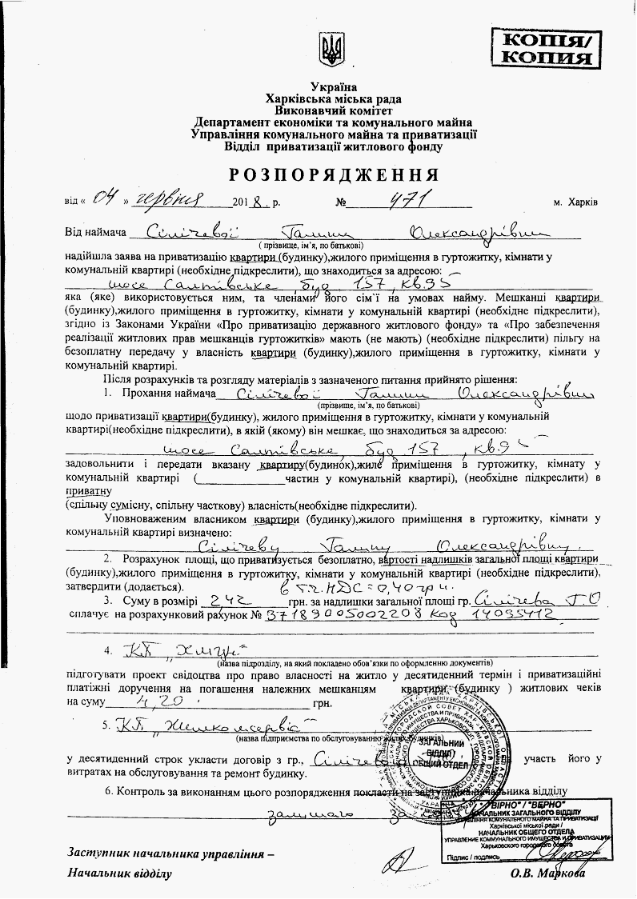 КОПІЯ/
КОПИЯ
Україна
Харківська міська рада
Виконавчий комітет
Департамент економіки та комунального майна
Управління комунального майна та приватизації
Відділ приватизації житлового фонду
РОЗПОРЯДЖЕННЯ
від « 04 » червня 2018 р. № 471 м. Харків
Від наймача Сілічевої Галини Олександрівни
( прізвище, ім’я, по батькові)
надійшла заява на приватизацію квартири (будинку),жилого приміщення в гуртожитку, кімнати у
комунальній квартирі (необхідне підкреслити), що знаходиться за адресою:
шосе Салтівське, буд 157, кв.95
яка (яке) використовується ним, та членами його сім’ї на умовах найму. Мешканці квартири
(будинку),жилого приміщення в гуртожитку, кімнати у комунальній квартирі (необхідне підкреслити),
згідно із Законами України «Про приватизацію державного житлового фонду» та «Про забезпечення
реалізації житлових прав мешканців гуртожитків» мають (не мають) (необхідне підкреслити) пільгу на
безоплатну передачу у власність квартири (будинку),жилого приміщення в гуртожитку, кімнати у
комунальній квартирі.
Після розрахунків та розгляду матеріалів з зазначеного питання прийнято рішення:
1. Прохання наймача Сілічевої Галини Олександрівни
(прізвище, ім’я, по батькові)
щодо приватизації квартири(будинку), жилого приміщення в гуртожитку, кімнати у комунальній
квартирі(необхідне підкреслити), в якій (якому) він мешкає, що знаходиться за адресою:
шосе Салтівське, буд 157, кв.95
задовольнити і передати вказану квартиру(будинок),жиле приміщення в гуртожитку, кімнату у
комунальній квартирі (____________частин у комунальній квартирі), (необхідне підкреслити) в
приватну
(спільну сумісну, спільну часткову) власність(необхідне підкреслити).
Уповноваженим власником квартири (будинку),жилого приміщення в гуртожитку, кімнати у
комунальній квартирі визначено:
Сілічеву Галину Олександрівну.
2. Розрахунок площі, що приватизується безоплатно, вартості надлишків загальної площі квартири
(будинку),жилого приміщення в гуртожитку, кімнати у комунальній квартирі (необхідне підкреслити),
затвердити (додається). в т.ч. НДС=0,40грн.
3. Суму в розмірі 2,42 грн. за надлишки загальної площі гр. Сілічева Г.О
сплачує на розрахунковий рахунок № 37189005002208 Код 14095412
4. КП
(назва підрозділу, на який покладено обов’язки по оформленню документів)
підготувати проект свідоцтва про право власності на житло у десятиденний термін і приватизаційні
платіжні доручення на погашення належних мешканцям квартири (будинку ) житлових чеків
на суму 4,20 грн.
5. КП „Жилкомсервіс"
(назва підприємства по обслуговуванню жилих будинків)
у десятиденний строк укласти договір з гр., Сілічева про участь його у
витратах на обслуговування та ремонт будинку.
ЗАГАЛЬНИЙ
ВІДДІЛ
ОБЩИЙ ОТДЕЛ
6. Контроль за виконанням цього розпорядження покласти на заступника начальника відділу
залишаю за
"ВІРНО" / "ВЕРНО"
НАЧАЛЬНИК ЗАГАЛЬНОГО ВІДДІЛУ
УПРАВЛІННЯ КОМУНАЛЬНОГО МАЙНА ТА ПРИВАТИЗАЦІЇ
Харківської міської ради /
НАЧАЛЬНИК ОБЩЕГО ОТДЕЛА
УПРАВЛЕНИЕ КОММУНАЛЬНОГО ИМУЩЕСТВА И ПРИВАТИЗАЦИИ
Харьковского городского совета
Підпис / подпись
Заступник начальника управління –
Начальник відділу О.В. Маркова